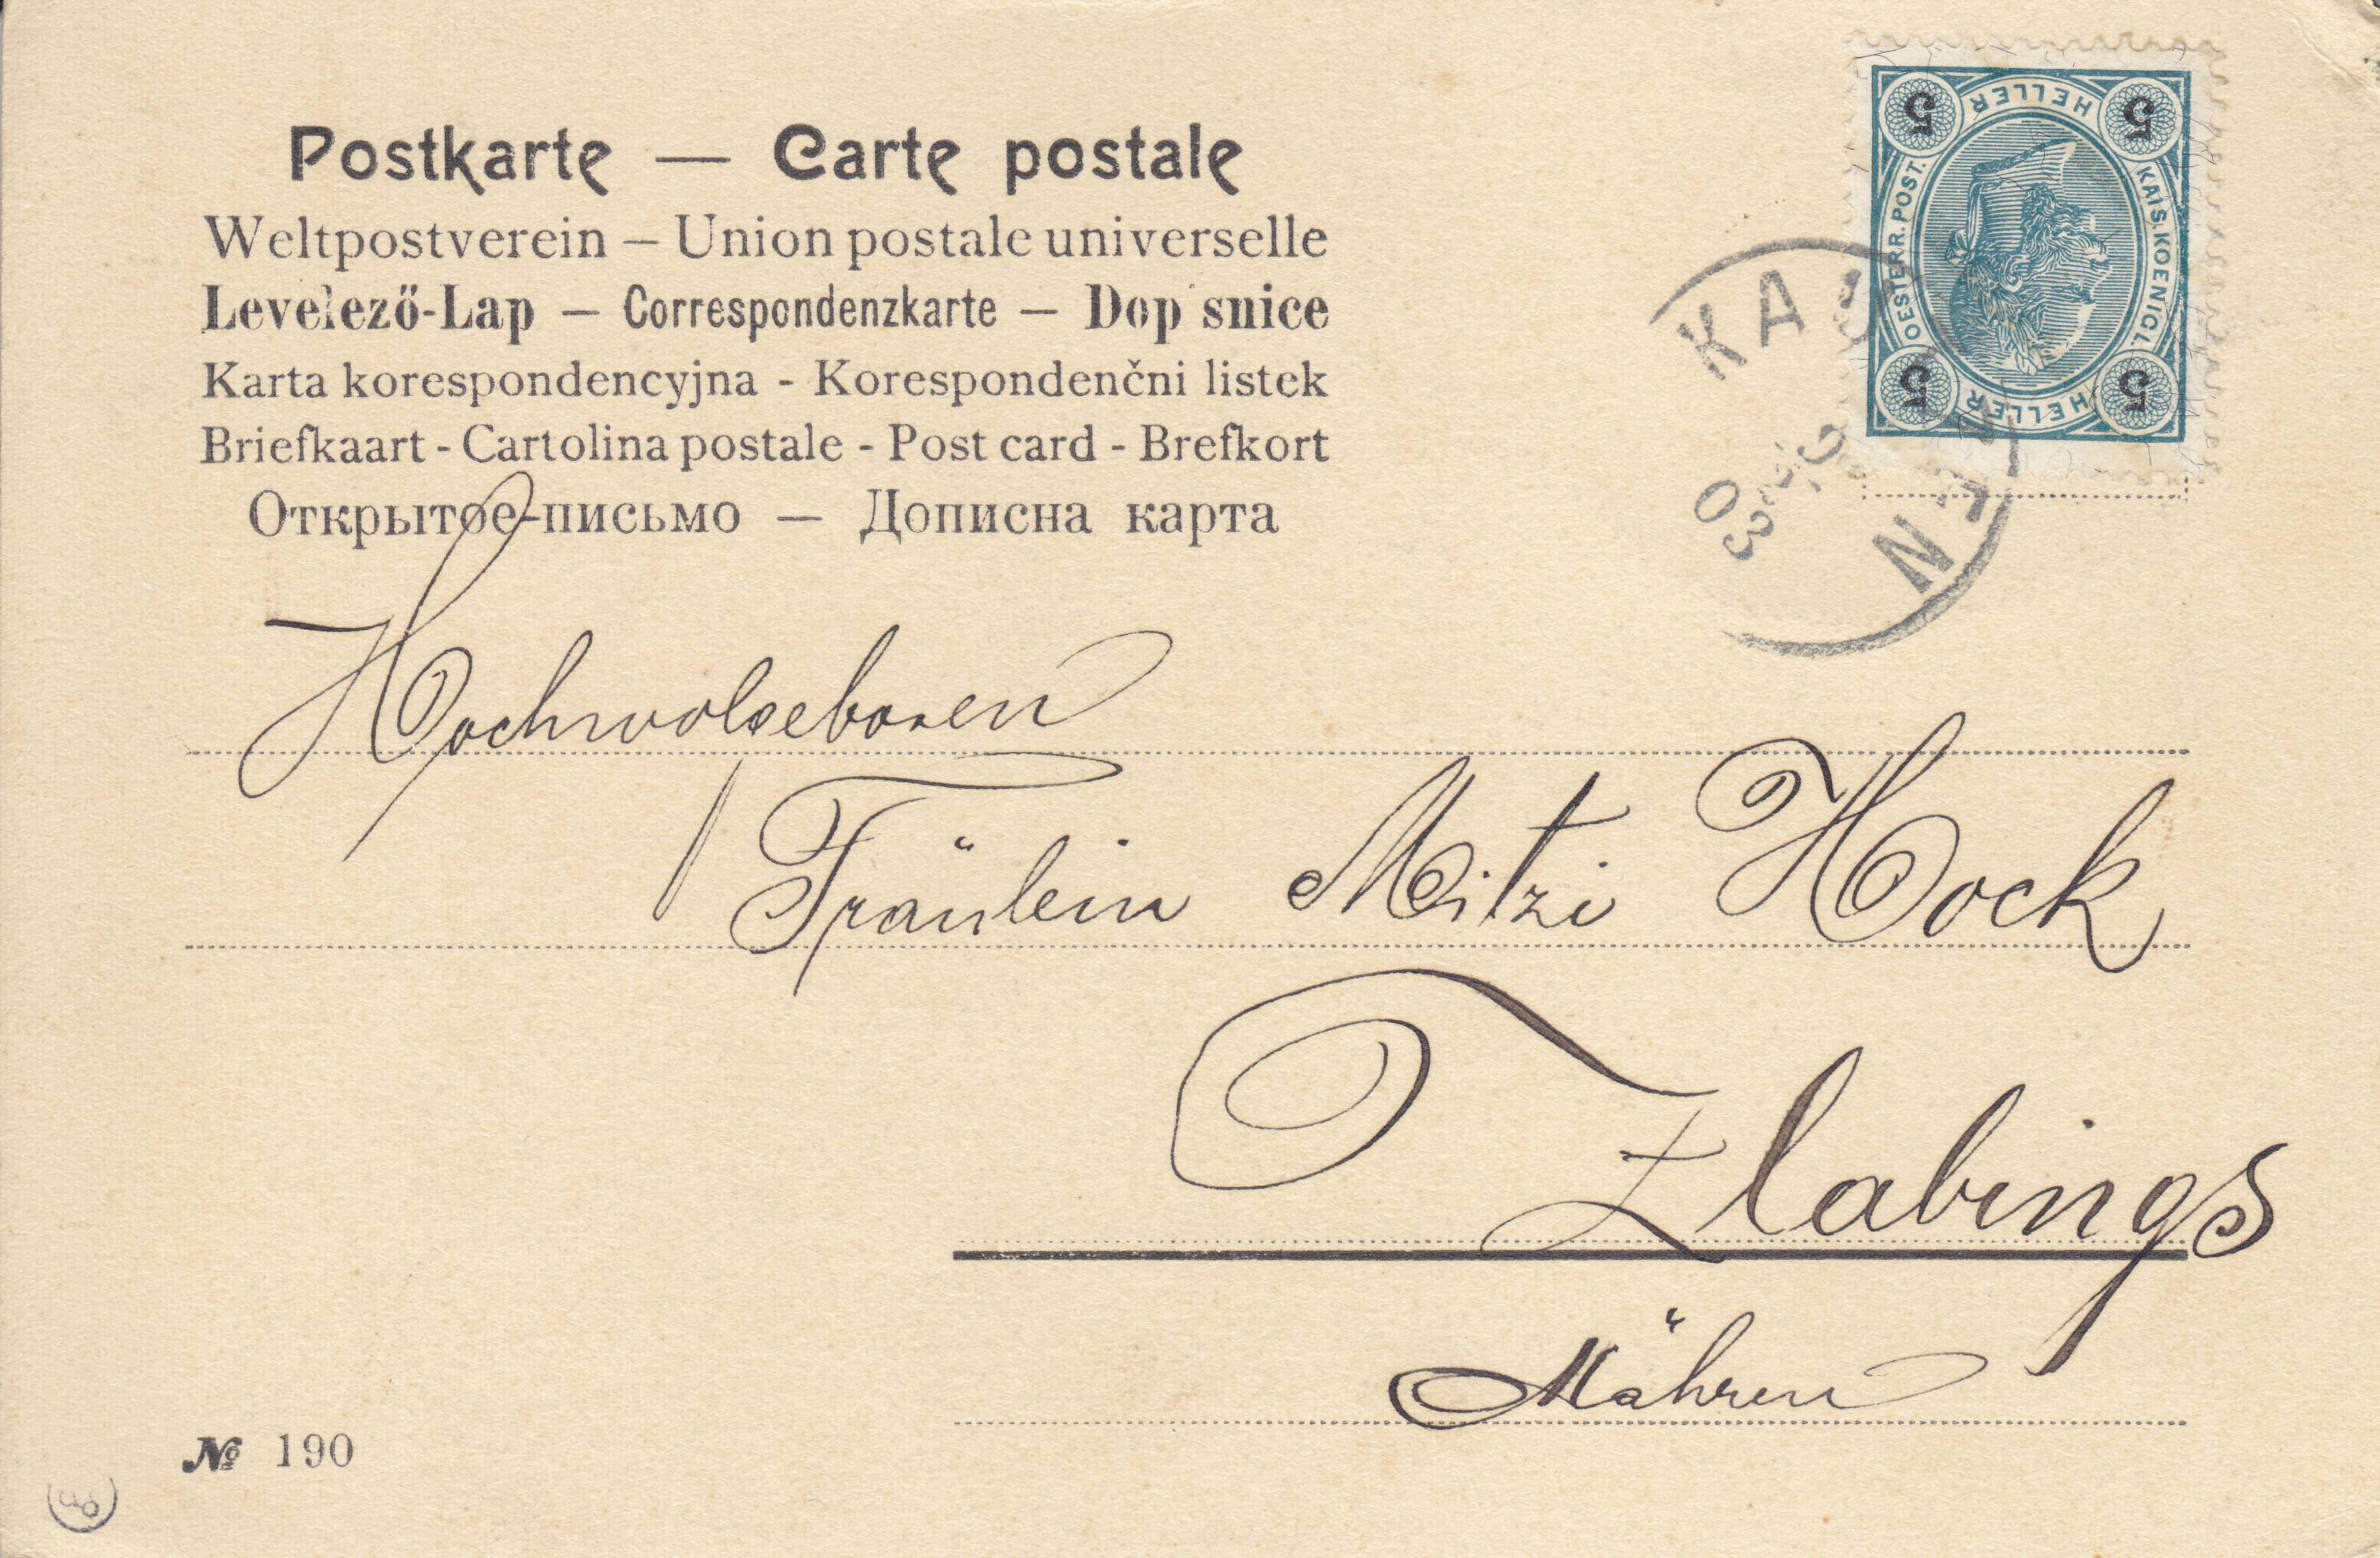 Postkarte — Carte postale
Weltpostverein – Union postale universelle
Levelező-Lap – Correspondenzkarte – Dop snice
Karta korespondencyjna - Korespondenčni listek
Briefkaart - Cartolina postale - Post card - Brefkort
Открытое письмо — Дописна карта
HELLER
5 5
OESTERR. POST.
KAIS. KOENIGL
5 5
HELLER
03
Hochwolgeboren
Fräulein Mitzi Hock
Zlabings
Mähren
№ 190